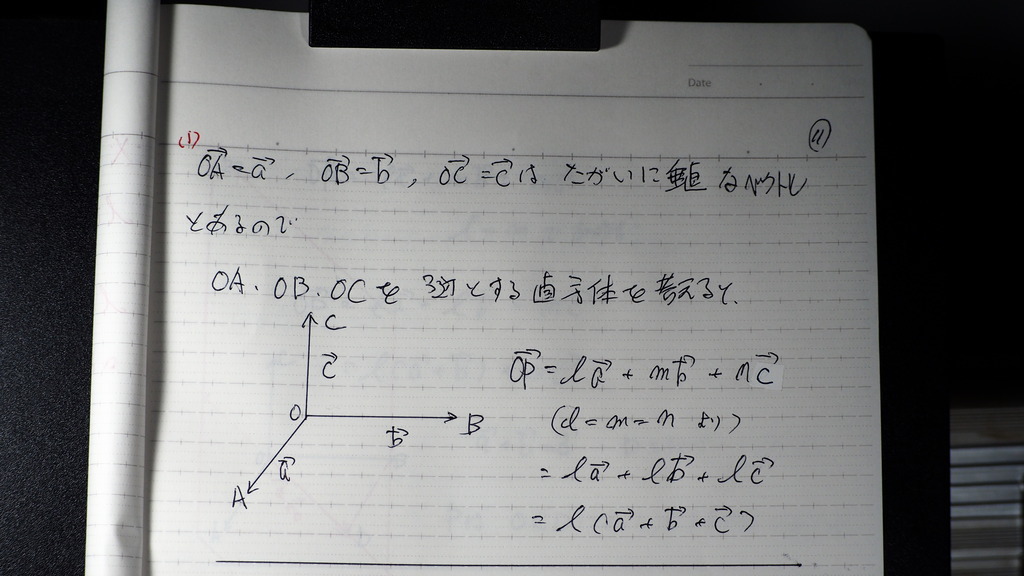 Date
⑪
(1)
OA→=a→, OB→=b→, OC→=c→は たがいに垂直なベクトル
とあるので
OA、OB、OCを3辺とする直方体を考えると、
C
c→
O
B
b→
a→
A
OP→=la→+mb→+nc→
(l=m=nより)
=la→+lb→+lc→
=l(a→+b→+c→)